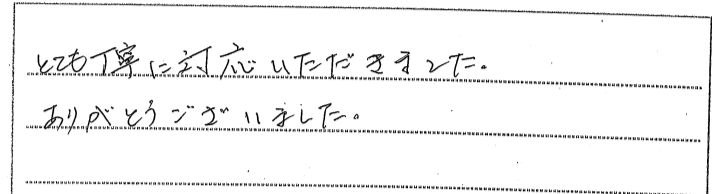 とても丁寧に対応いただきました。
ありがとうございました。